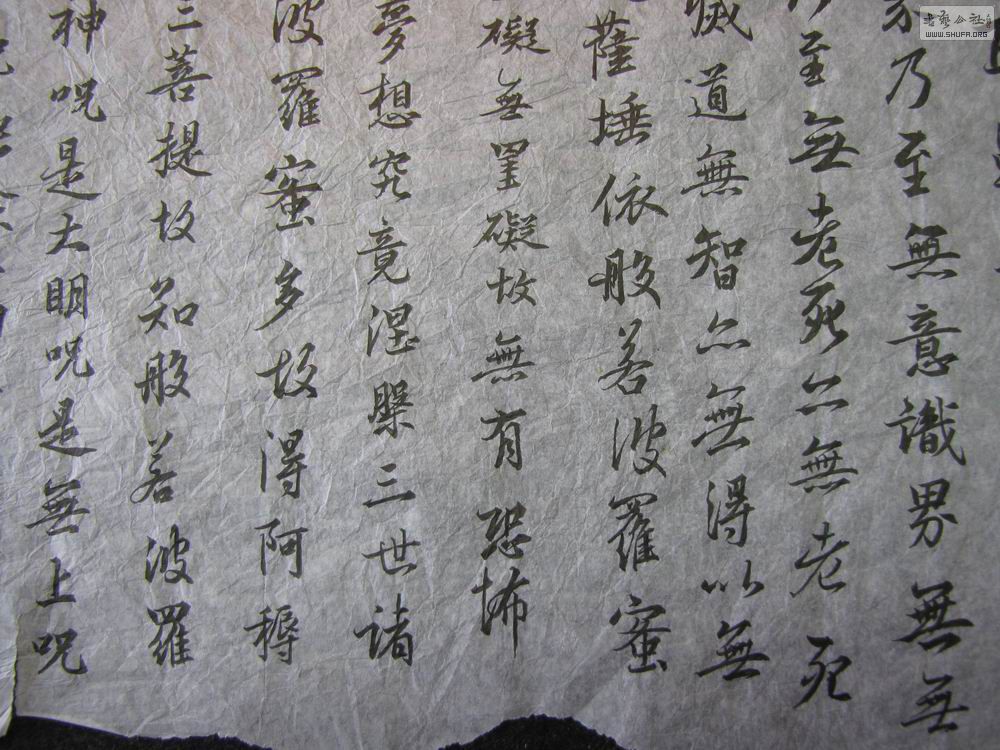 乃至無意識界無無
至無老死亦無老死
滅道無智亦無得以無
薩埵依般若波羅蜜
礙無罣礙故無有恐怖
夢想究竟涅槃三世諸
波羅蜜多故得阿耨
三菩提故知般若波羅
神咒是大明咒是無上咒
WWW.SHUFA.ORG